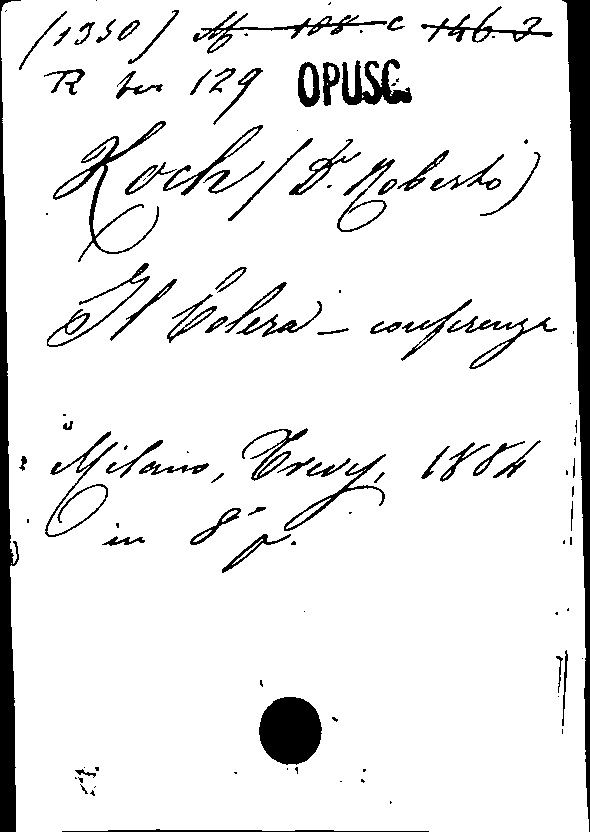 (1350) M. 188. c 146. 3
R ber 129 OPUSC.
Koch (Dr. Roberto)
Il Colera - conferenza
Milano, Trevy, 1884
in 8° p.